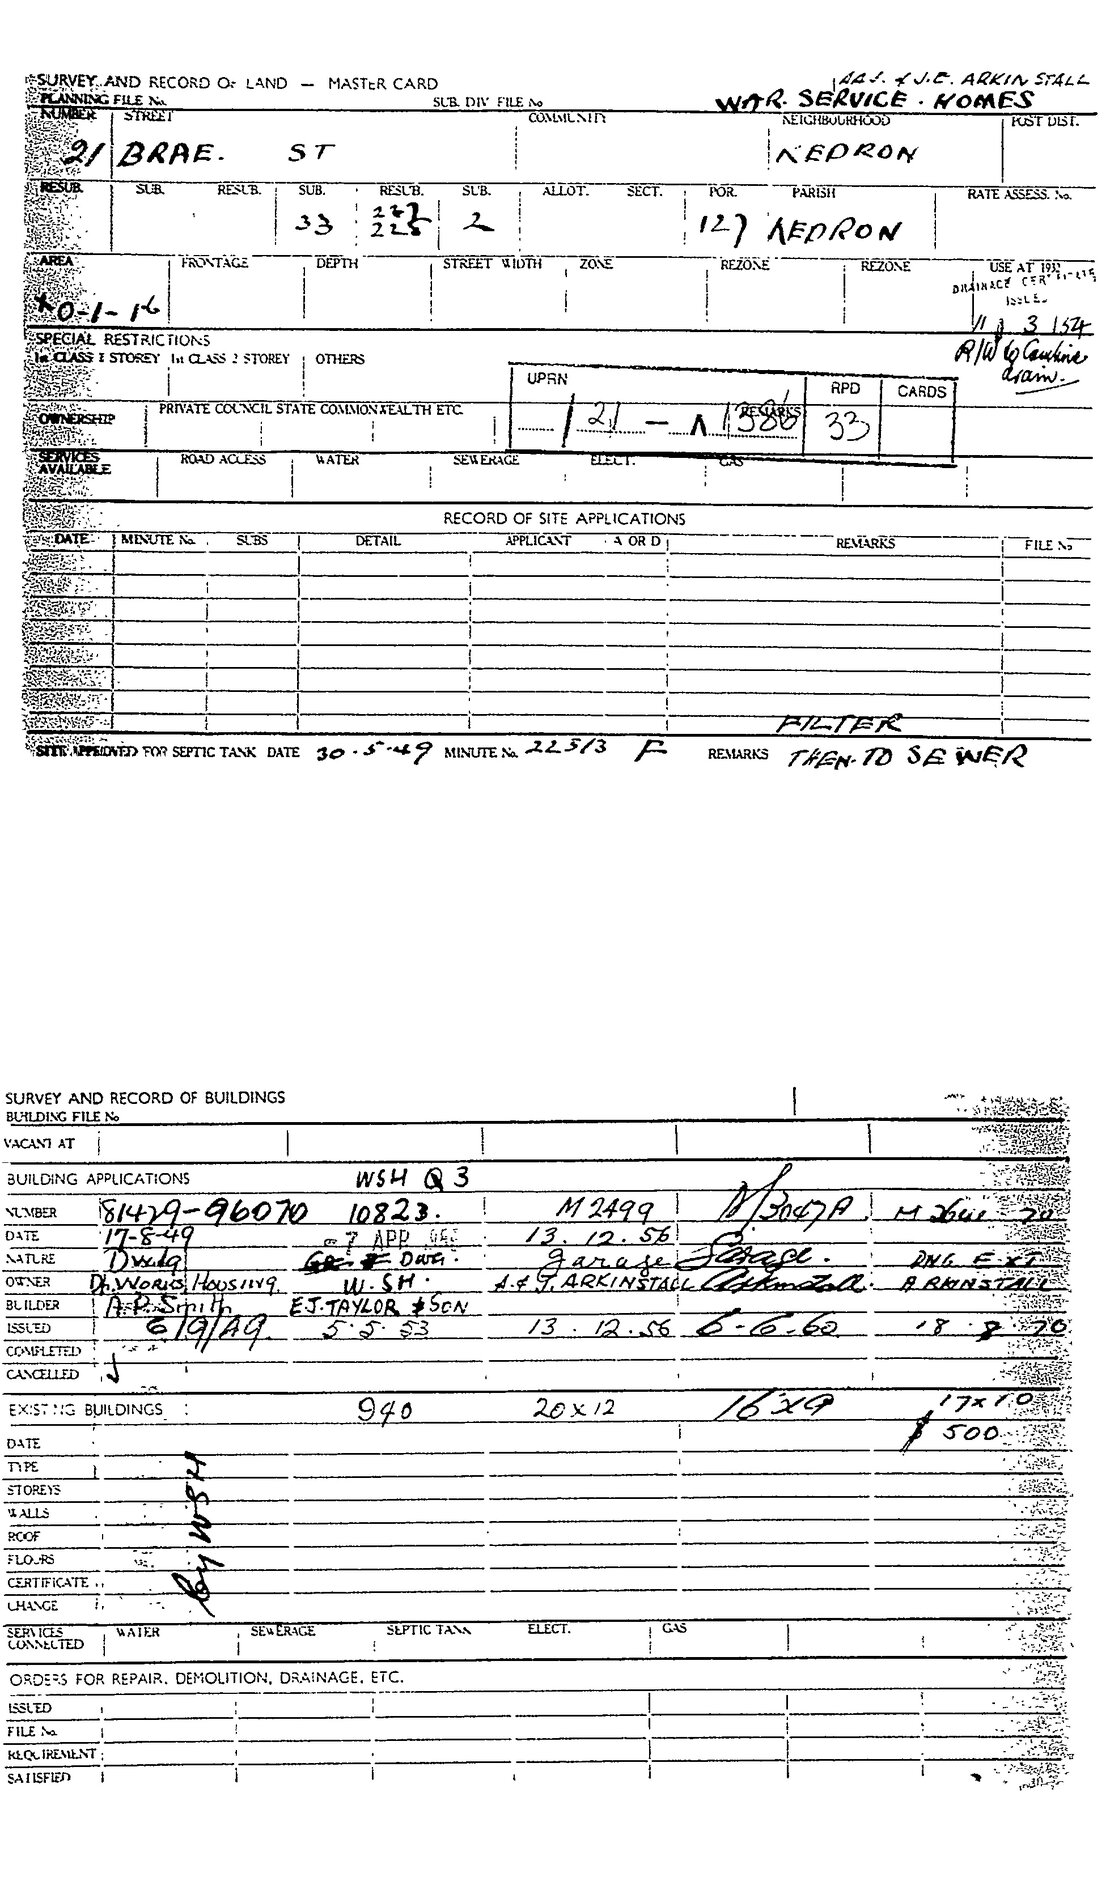 SURVEY AND RECORD OF LAND — MASTER CARD A & J. & J.E. ARKINSTALL
PLANNING FILE No. SUB. DIV FILE No WAR. SERVICE. HOMES
NUMBER STREET COMMUNITY NEIGHBOURHOOD POST DIST.
21 BRAE. ST KEDRON
RESUB. SUB. RESUB. SUB. RESUB. SUB. ALLOT. SECT. POR. PARISH RATE ASSESS. No.
33 227 2 127 KEDRON
228
AREA FRONTAGE DEPTH STREET WIDTH ZONE REZONE REZONE USE AT 1952
DRAINAGE CERTIFICATE
ISSUED
0-1-16 11 3 154
SPECIAL RESTRICTIONS R/W by
1st CLASS 1 STOREY 1st CLASS 2 STOREY OTHERS drain.
UPRN RPD CARDS
OWNERSHIP PRIVATE COUNCIL STATE COMMONWEALTH ETC. REMARKS
/ 21 — 1386 33
SERVICES AVAILABLE ROAD ACCESS WATER SEWERAGE ELECT. GAS
RECORD OF SITE APPLICATIONS
DATE MINUTE No. SUBS DETAIL APPLICANT A OR D REMARKS FILE No
FILTER
SITE APPROVED FOR SEPTIC TANK DATE 30.5.49 MINUTE No. 22513 F REMARKS THEN. TO SEWER
SURVEY AND RECORD OF BUILDINGS
BUILDING FILE No
VACANT AT
BUILDING APPLICATIONS WSH Q3
NUMBER 81479-96070 10823. M2499 3047A M 70
DATE 17-8-49 -7 APR 13.12.56
NATURE Dwdg Dwg. garage Garage. DNG EXT
OWNER Dt. Works Housing W.SH. A.& J. ARKINSTALL Arkinstall. ARKINSTALL
BUILDER A.P. Smith E.J. TAYLOR & SON
ISSUED 6/9/49. 5.5.53 13.12.56 6-6-60 18.8.70
COMPLETED
CANCELLED
EXISTING BUILDINGS 940 20x12 16x9 17x10
DATE $ 500
TYPE
STOREYS
WALLS
ROOF
FLOORS
CERTIFICATE
CHANGE
by WSH
SERVICES CONNECTED WATER SEWERAGE SEPTIC TANK ELECT. GAS
ORDERS FOR REPAIR, DEMOLITION, DRAINAGE, ETC.
ISSUED
FILE No.
REQUIREMENT
SATISFIED